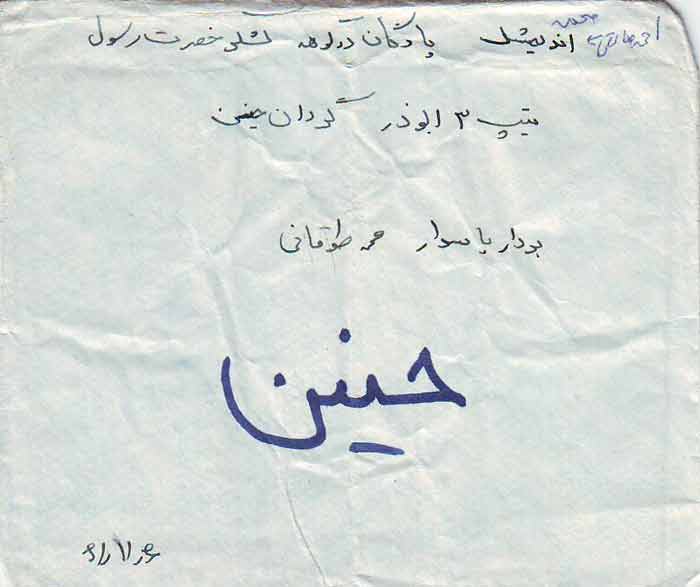 اندیمشک پادگان دوکوهه لشکر حضرت رسول
تیپ ۳ ابوذر گردان حنین
برادر پاسدار محمد طوقانی
حنین